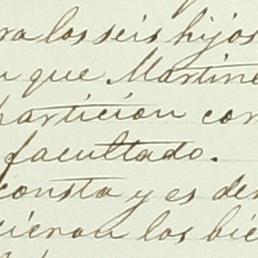 ra los seis hijos
que Martine
particion con
facultado.
consta y es de
cieron los bie